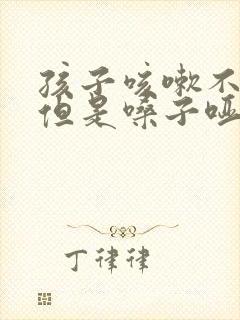 孩子咳嗽不
但是嗓子哑
丁律律